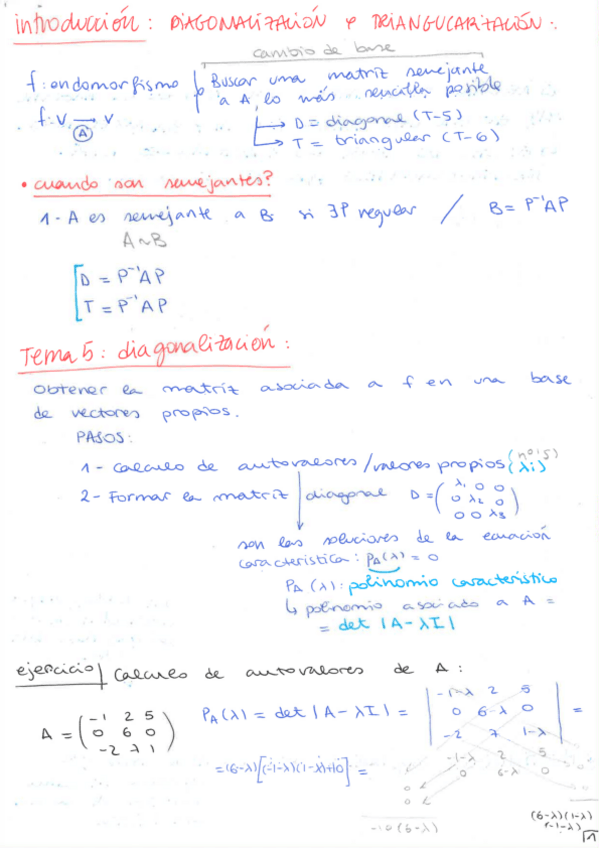 introducción: DIAGONALIZACIÓN Y TRIANGULARIZACIÓN:
cambio de base
f: endomorfismo Buscar una matriz semejante
a A, lo más sencilla posible
f: V → V
A
→ D = diagonal (T-5)
→ T = triangular (T-6)
• cuando son semejantes?
1- A es semejante a B si ∃P regular / B = P⁻¹AP
A∼B
D = P⁻¹AP
T = P⁻¹AP
Tema 5: diagonalización:
Obtener la matriz asociada a f en una base
de vectores propios.
PASOS:
1- Calculo de autovalores/valores propios (λi) (nº's)
2- Formar la matriz diagonal D = (λ1 0 0
0 λ2 0
0 0 λ3)
son las soluciones de la ecuación
característica: PA(λ) = 0
PA(λ): polinomio característico
↳ polinomio asociado a A =
= det |A-λI|
ejercicio| Calculo de autovalores de A:
A = (-1 2 5
0 6 0
-2 7 1)
PA(λ) = det |A-λI| = |-1-λ 2 5
0 6-λ 0
-2 7 1-λ| =
-1-λ 2 5
0 6-λ 0
=(6-λ)[(-1-λ)(1-λ)+10] =
-10(6-λ)
(6-λ)(1-λ)
(-1-λ)
1